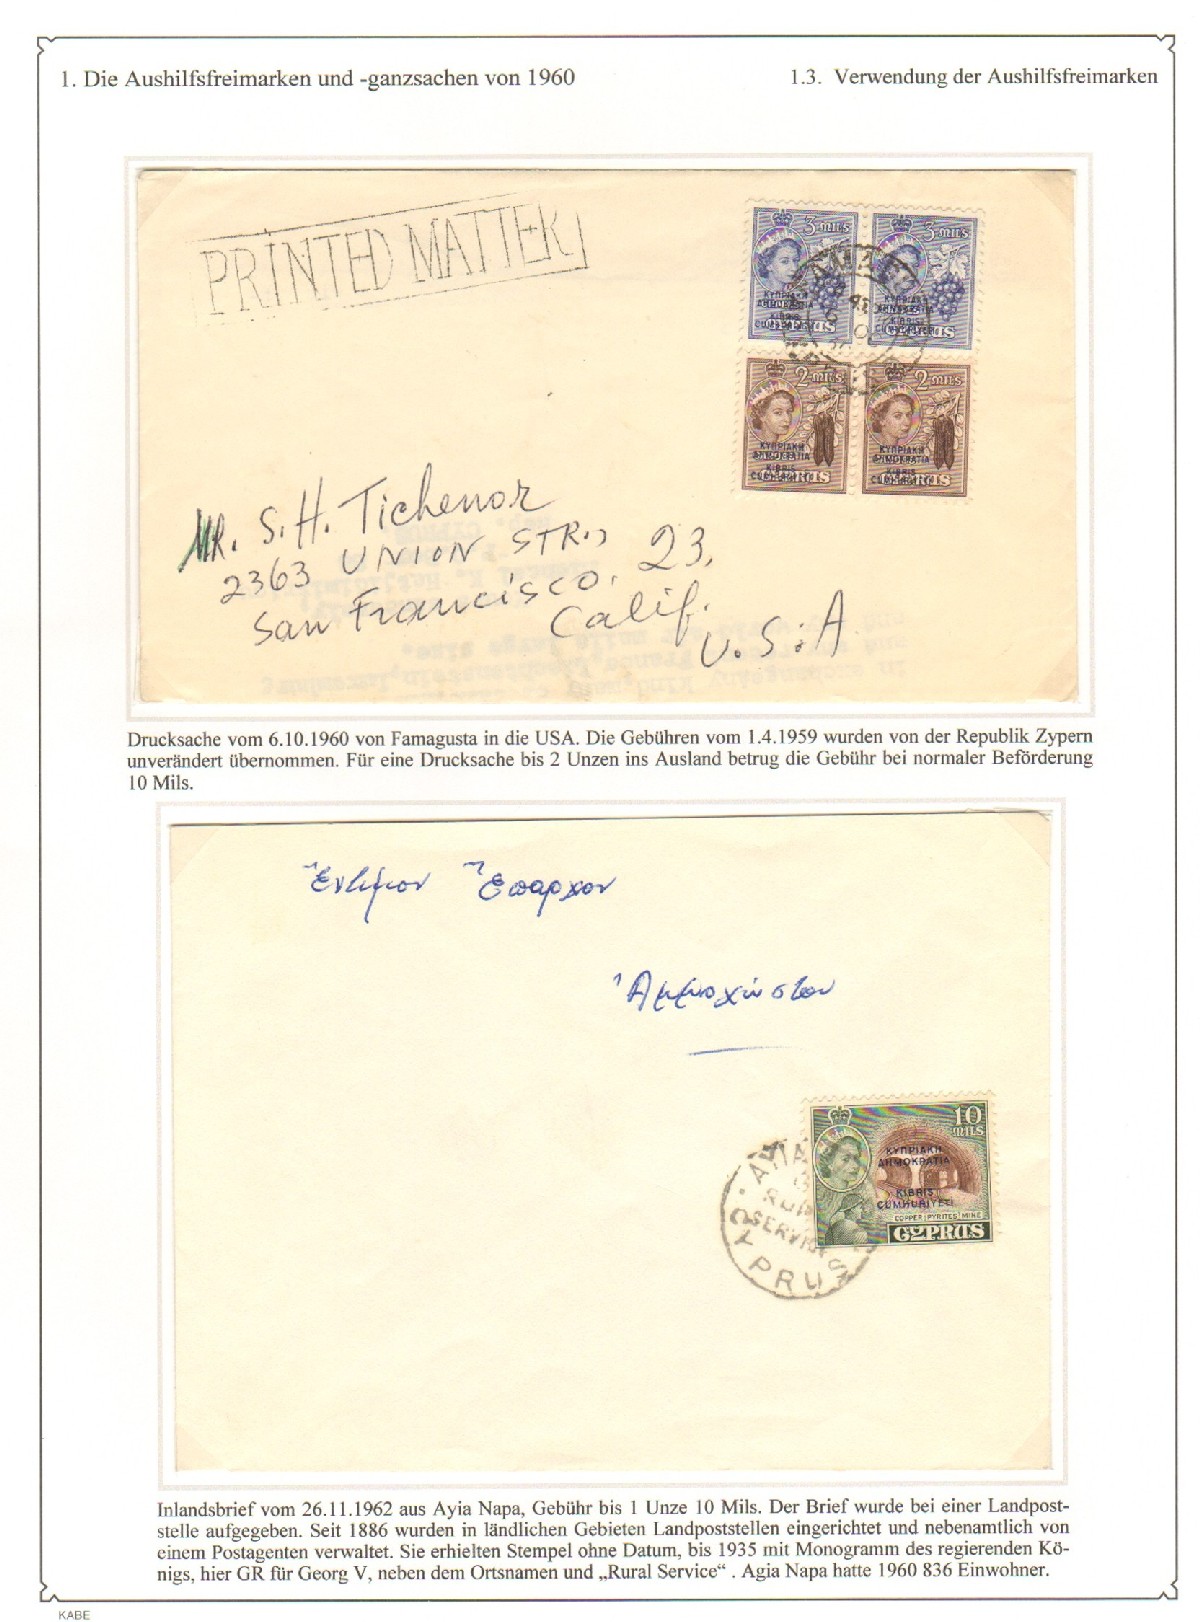 1. Die Aushilfsfreimarken und -ganzsachen von 1960
1.3. Verwendung der Aushilfsfreimarken
PRINTED MATTER
3 MILS
3 MILS
ΚΥΠΡΙΑΚΗ
ΔΗΜΟΚΡΑΤΙΑ
KIBRIS
CUMHURİYETİ
CYPRUS
ΚΥΠΡΙΑΚΗ
ΔΗΜΟΚΡΑΤΙΑ
KIBRIS
CUMHURİYETİ
CYPRUS
2 MILS
2 MILS
ΚΥΠΡΙΑΚΗ
ΔΗΜΟΚΡΑΤΙΑ
KIBRIS
CUMHURİYETİ
CYPRUS
ΚΥΠΡΙΑΚΗ
ΔΗΜΟΚΡΑΤΙΑ
KIBRIS
CUMHURİYETİ
CYPRUS
MR. S.H. Tichenor
2363 UNION STR.,
San Francisco. 23,
Calif.
U.S.A
Drucksache vom 6.10.1960 von Famagusta in die USA. Die Gebühren vom 1.4.1959 wurden von der Republik Zypern
unverändert übernommen. Für eine Drucksache bis 2 Unzen ins Ausland betrug die Gebühr bei normaler Beförderung
10 Mils.
Ἔντιμον Ἔπαρχον
Ἀμμοχώστου
10
MILS
ΚΥΠΡΙΑΚΗ
ΔΗΜΟΚΡΑΤΙΑ
KIBRIS
CUMHURİYETİ
COPPER PYRITES MINE
CYPRUS
AYIA
SERVICE
CYPRUS
Inlandsbrief vom 26.11.1962 aus Ayia Napa, Gebühr bis 1 Unze 10 Mils. Der Brief wurde bei einer Landpost-
stelle aufgegeben. Seit 1886 wurden in ländlichen Gebieten Landpoststellen eingerichtet und nebenamtlich von
einem Postagenten verwaltet. Sie erhielten Stempel ohne Datum, bis 1935 mit Monogramm des regierenden Kö-
nigs, hier GR für Georg V, neben dem Ortsnamen und „Rural Service“ . Agia Napa hatte 1960 836 Einwohner.
KABE